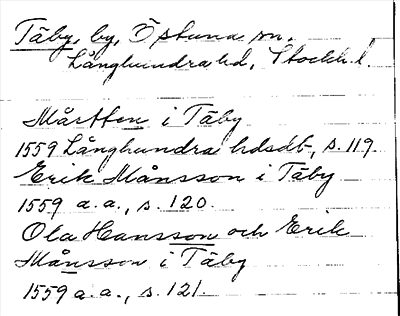 Täby, by, Östuna sn,
Långhundra hd, Stockh. l.
Mårtten i Täby
1559 Långhundra hdsdb, s. 119.
Erik Månsson i Täby
1559 a. a., s. 120.
Ola Hansson och Erik
Månsson i Täby
1559 a. a., s. 121.